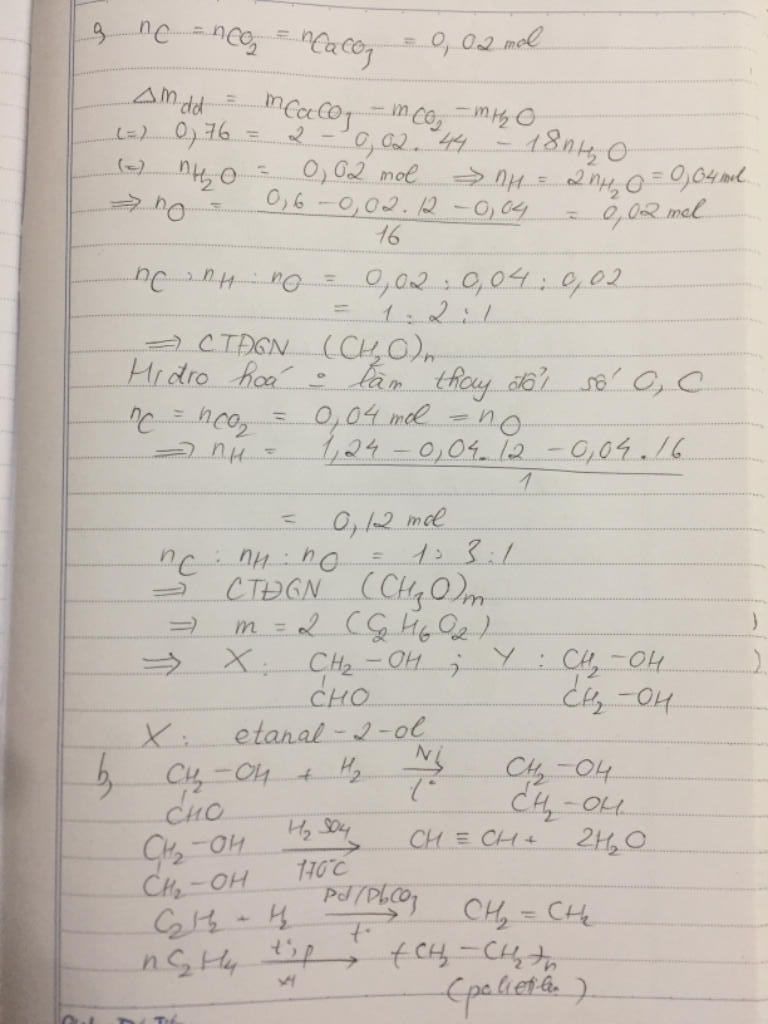 a, nC = nCO2 = nCaCO3 = 0,02 mol
Δmdd = mCaCO3 - mCO2 - mH2O
(=) 0,76 = 2 - 0,02.44 - 18nH2O
(=) nH2O = 0,02 mol ⇒ nH = 2nH2O = 0,04 mol
⇒ nO = 0,6 - 0,02.12 - 0,04 = 0,02 mol
16
nC : nH : nO = 0,02 : 0,04 : 0,02
= 1 : 2 : 1
⇒ CTĐGN (CH2O)n
Hidro hoá = làm thay đổi số O, C
nC = nCO2 = 0,04 mol = nO
⇒ nH = 1,24 - 0,04.12 - 0,04.16
1
= 0,12 mol
nC : nH : nO = 1 : 3 : 1
⇒ CTĐGN (CH3O)m
⇒ m = 2 (C2H6O2)
⇒ X : CH2-OH ; Y : CH2-OH
CHO CH2-OH
X : etanal-2-ol
b, CH2-OH + H2 Ni → CH2-OH
CHO t° CH2-OH
CH2-OH H2SO4 → CH ≡ CH + 2H2O
CH2-OH 170°C
C2H2 + H2 Pd/PbCO3 → CH2 = CH2
t°
nC2H4 t°, p → (CH2-CH2)n
xt